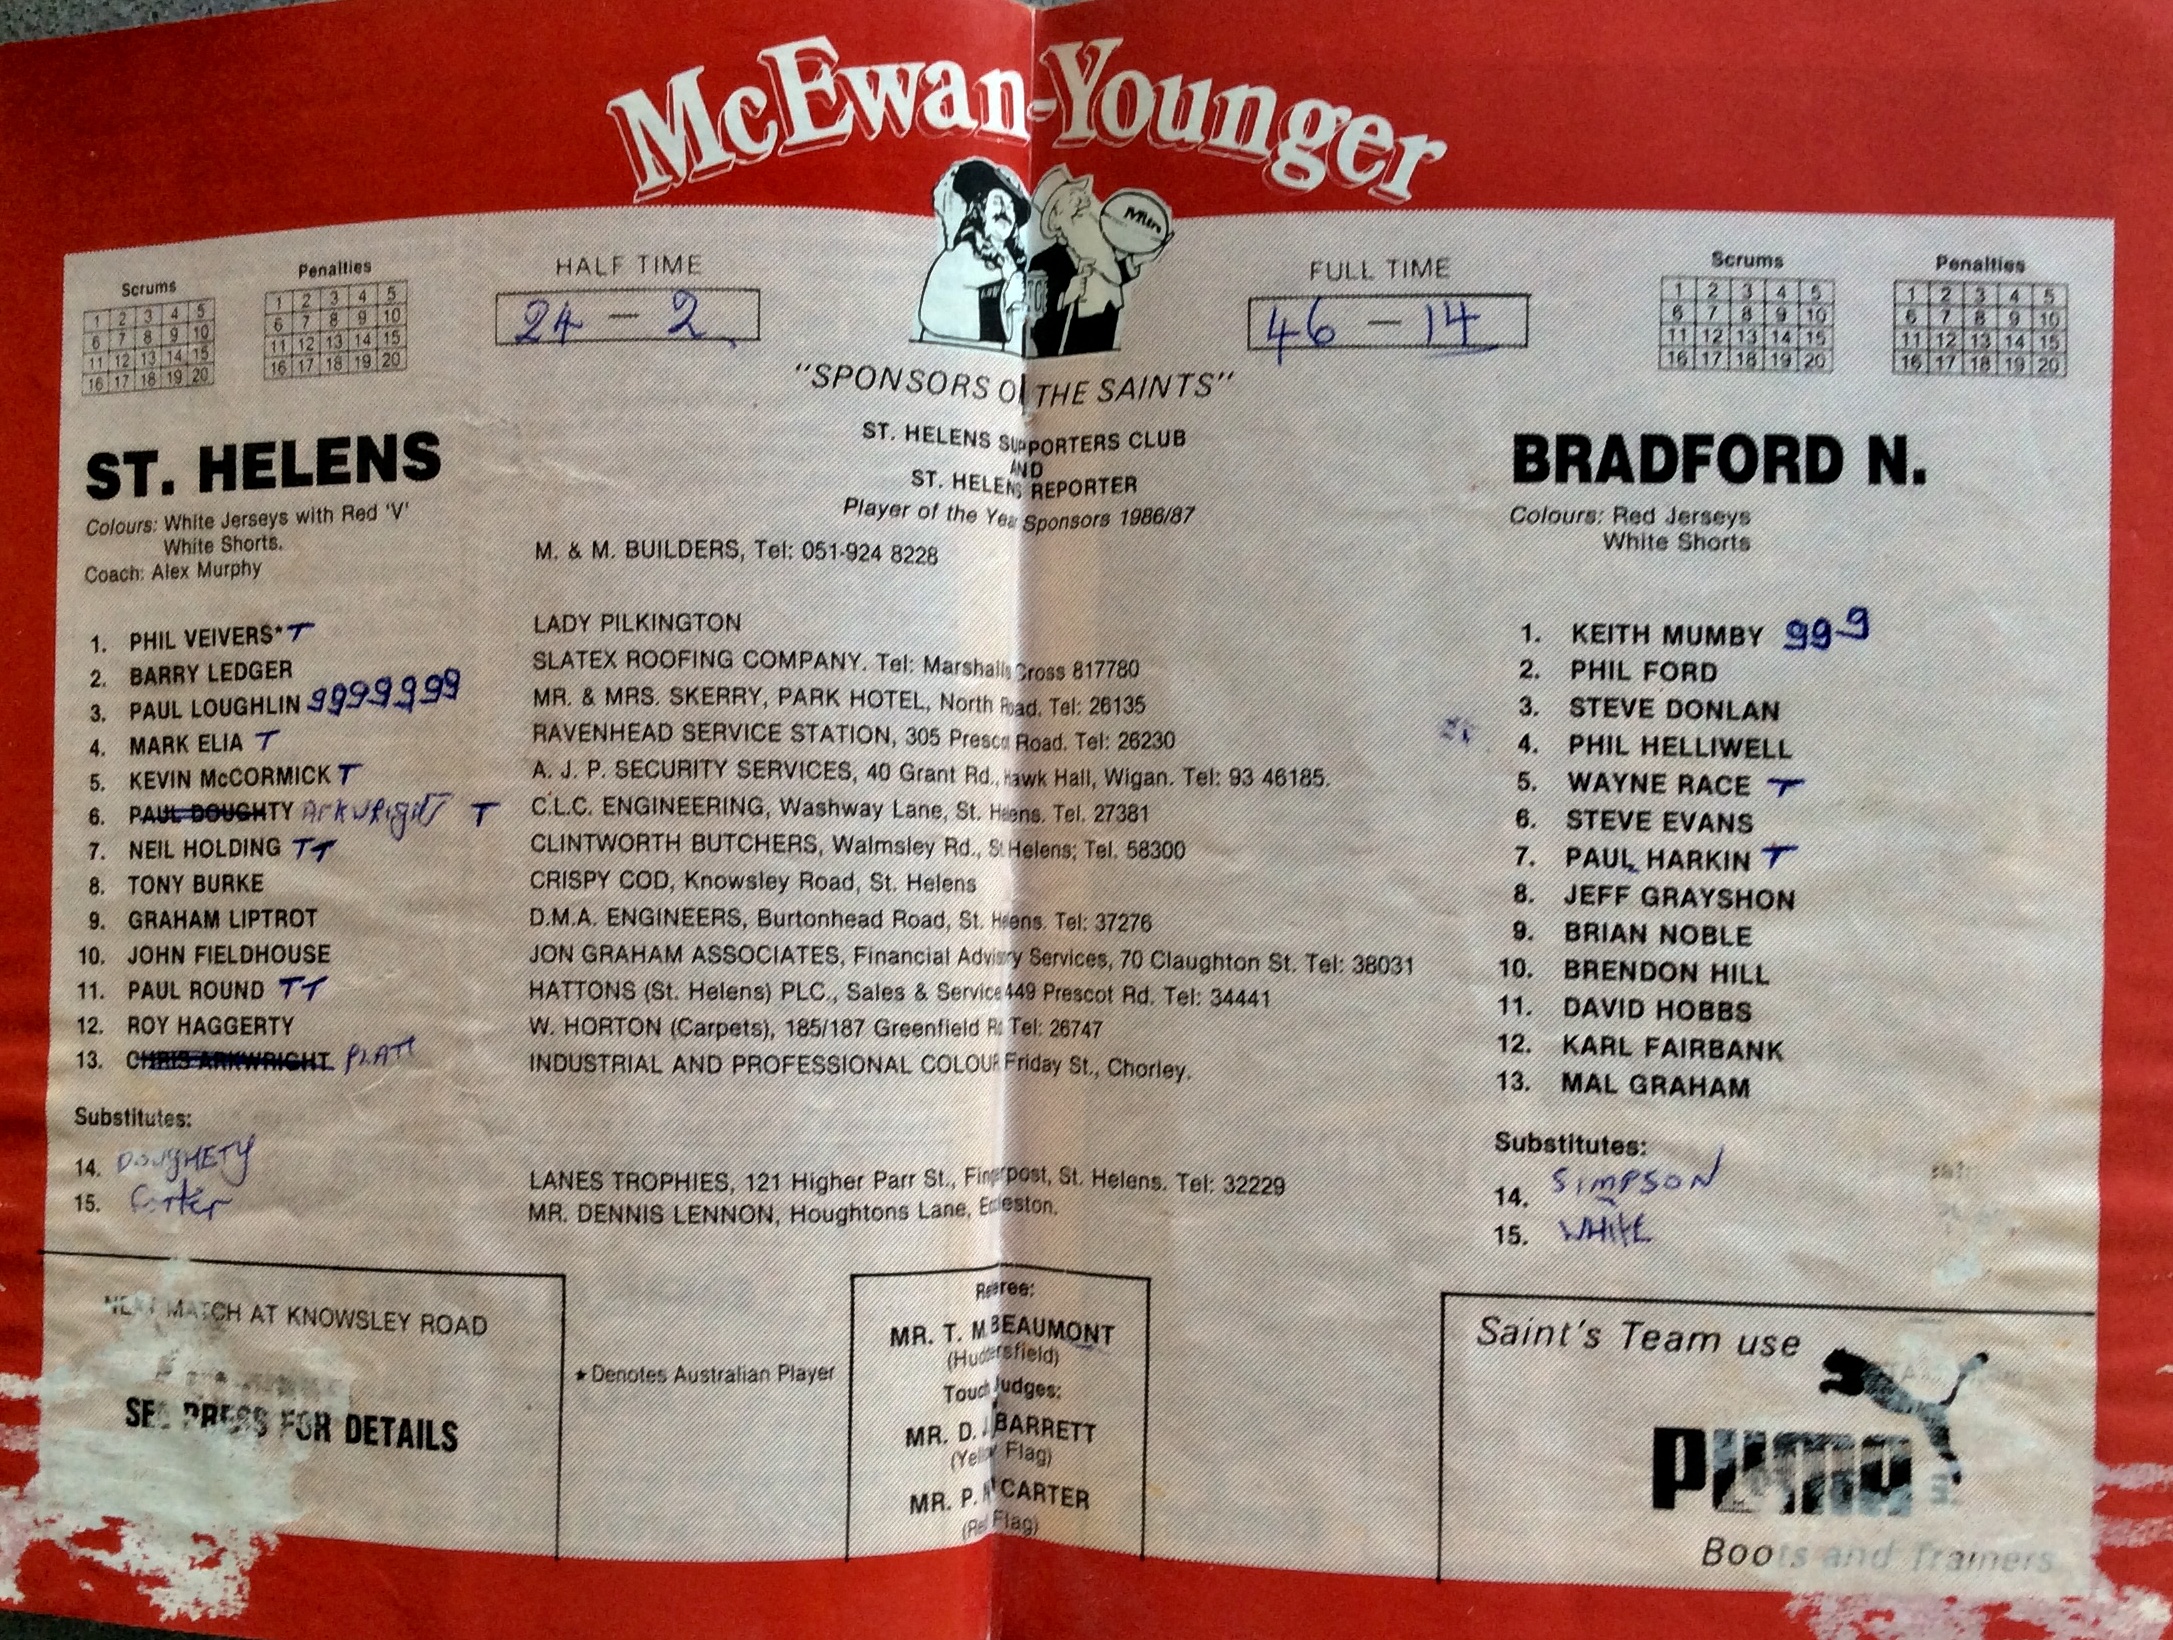 McEwan-Younger
Scrums
1 2 3 4 5
6 7 8 9 10
11 12 13 14 15
16 17 18 19 20
Penalties
1 2 3 4 5
6 7 8 9 10
11 12 13 14 15
16 17 18 19 20
HALF TIME
24 – 2
FULL TIME
46 – 14
Scrums
1 2 3 4 5
6 7 8 9 10
11 12 13 14 15
16 17 18 19 20
Penalties
1 2 3 4 5
6 7 8 9 10
11 12 13 14 15
16 17 18 19 20
"SPONSORS O THE SAINTS"
ST. HELENS SUPPORTERS CLUB
AND
ST. HELENS REPORTER
Player of the Yea Sponsors 1986/87
ST. HELENS
Colours: White Jerseys with Red 'V'
White Shorts.
Coach: Alex Murphy
1. PHIL VEIVERS* T
2. BARRY LEDGER
3. PAUL LOUGHLIN 9999999
4. MARK ELIA T
5. KEVIN McCORMICK T
6. PAUL DOUGHTY ARKWRIGHT T
7. NEIL HOLDING TT
8. TONY BURKE
9. GRAHAM LIPTROT
10. JOHN FIELDHOUSE
11. PAUL ROUND TT
12. ROY HAGGERTY
13. CHRIS ARKWRIGHT PLATT
Substitutes:
14. DOUGHETY
15.
M. & M. BUILDERS, Tel: 051-924 8228
LADY PILKINGTON
SLATEX ROOFING COMPANY. Tel: Marshalls Cross 817780
MR. & MRS. SKERRY, PARK HOTEL, North Road. Tel: 26135
RAVENHEAD SERVICE STATION, 305 Presco Road. Tel: 26230
A. J. P. SECURITY SERVICES, 40 Grant Rd., Hawk Hall, Wigan. Tel: 93 46185.
C.L.C. ENGINEERING, Washway Lane, St. Helens. Tel. 27381
CLINTWORTH BUTCHERS, Walmsley Rd., St Helens; Tel. 58300
CRISPY COD, Knowsley Road, St. Helens
D.M.A. ENGINEERS, Burtonhead Road, St. Helens. Tel: 37276
JON GRAHAM ASSOCIATES, Financial Advisory Services, 70 Claughton St. Tel: 38031
HATTONS (St. Helens) PLC., Sales & Service 449 Prescot Rd. Tel: 34441
W. HORTON (Carpets), 185/187 Greenfield Rd Tel: 26747
INDUSTRIAL AND PROFESSIONAL COLOUR Friday St., Chorley.
LANES TROPHIES, 121 Higher Parr St., Fingerpost, St. Helens. Tel: 32229
MR. DENNIS LENNON, Houghtons Lane, Eccleston.
BRADFORD N.
Colours: Red Jerseys
White Shorts
1. KEITH MUMBY 999
2. PHIL FORD
3. STEVE DONLAN
4. PHIL HELLIWELL
5. WAYNE RACE T
6. STEVE EVANS
7. PAUL HARKIN T
8. JEFF GRAYSHON
9. BRIAN NOBLE
10. BRENDON HILL
11. DAVID HOBBS
12. KARL FAIRBANK
13. MAL GRAHAM
Substitutes:
14. SIMPSON
15. WHITE
NEXT MATCH AT KNOWSLEY ROAD
SEE PRESS FOR DETAILS
★ Denotes Australian Player
Referee:
MR. T. M BEAUMONT
(Huddersfield)
Touch Judges:
MR. D. J BARRETT
(Yellow Flag)
MR. P. CARTER
(Red Flag)
Saint's Team use
PUMA
Boots and Trainers